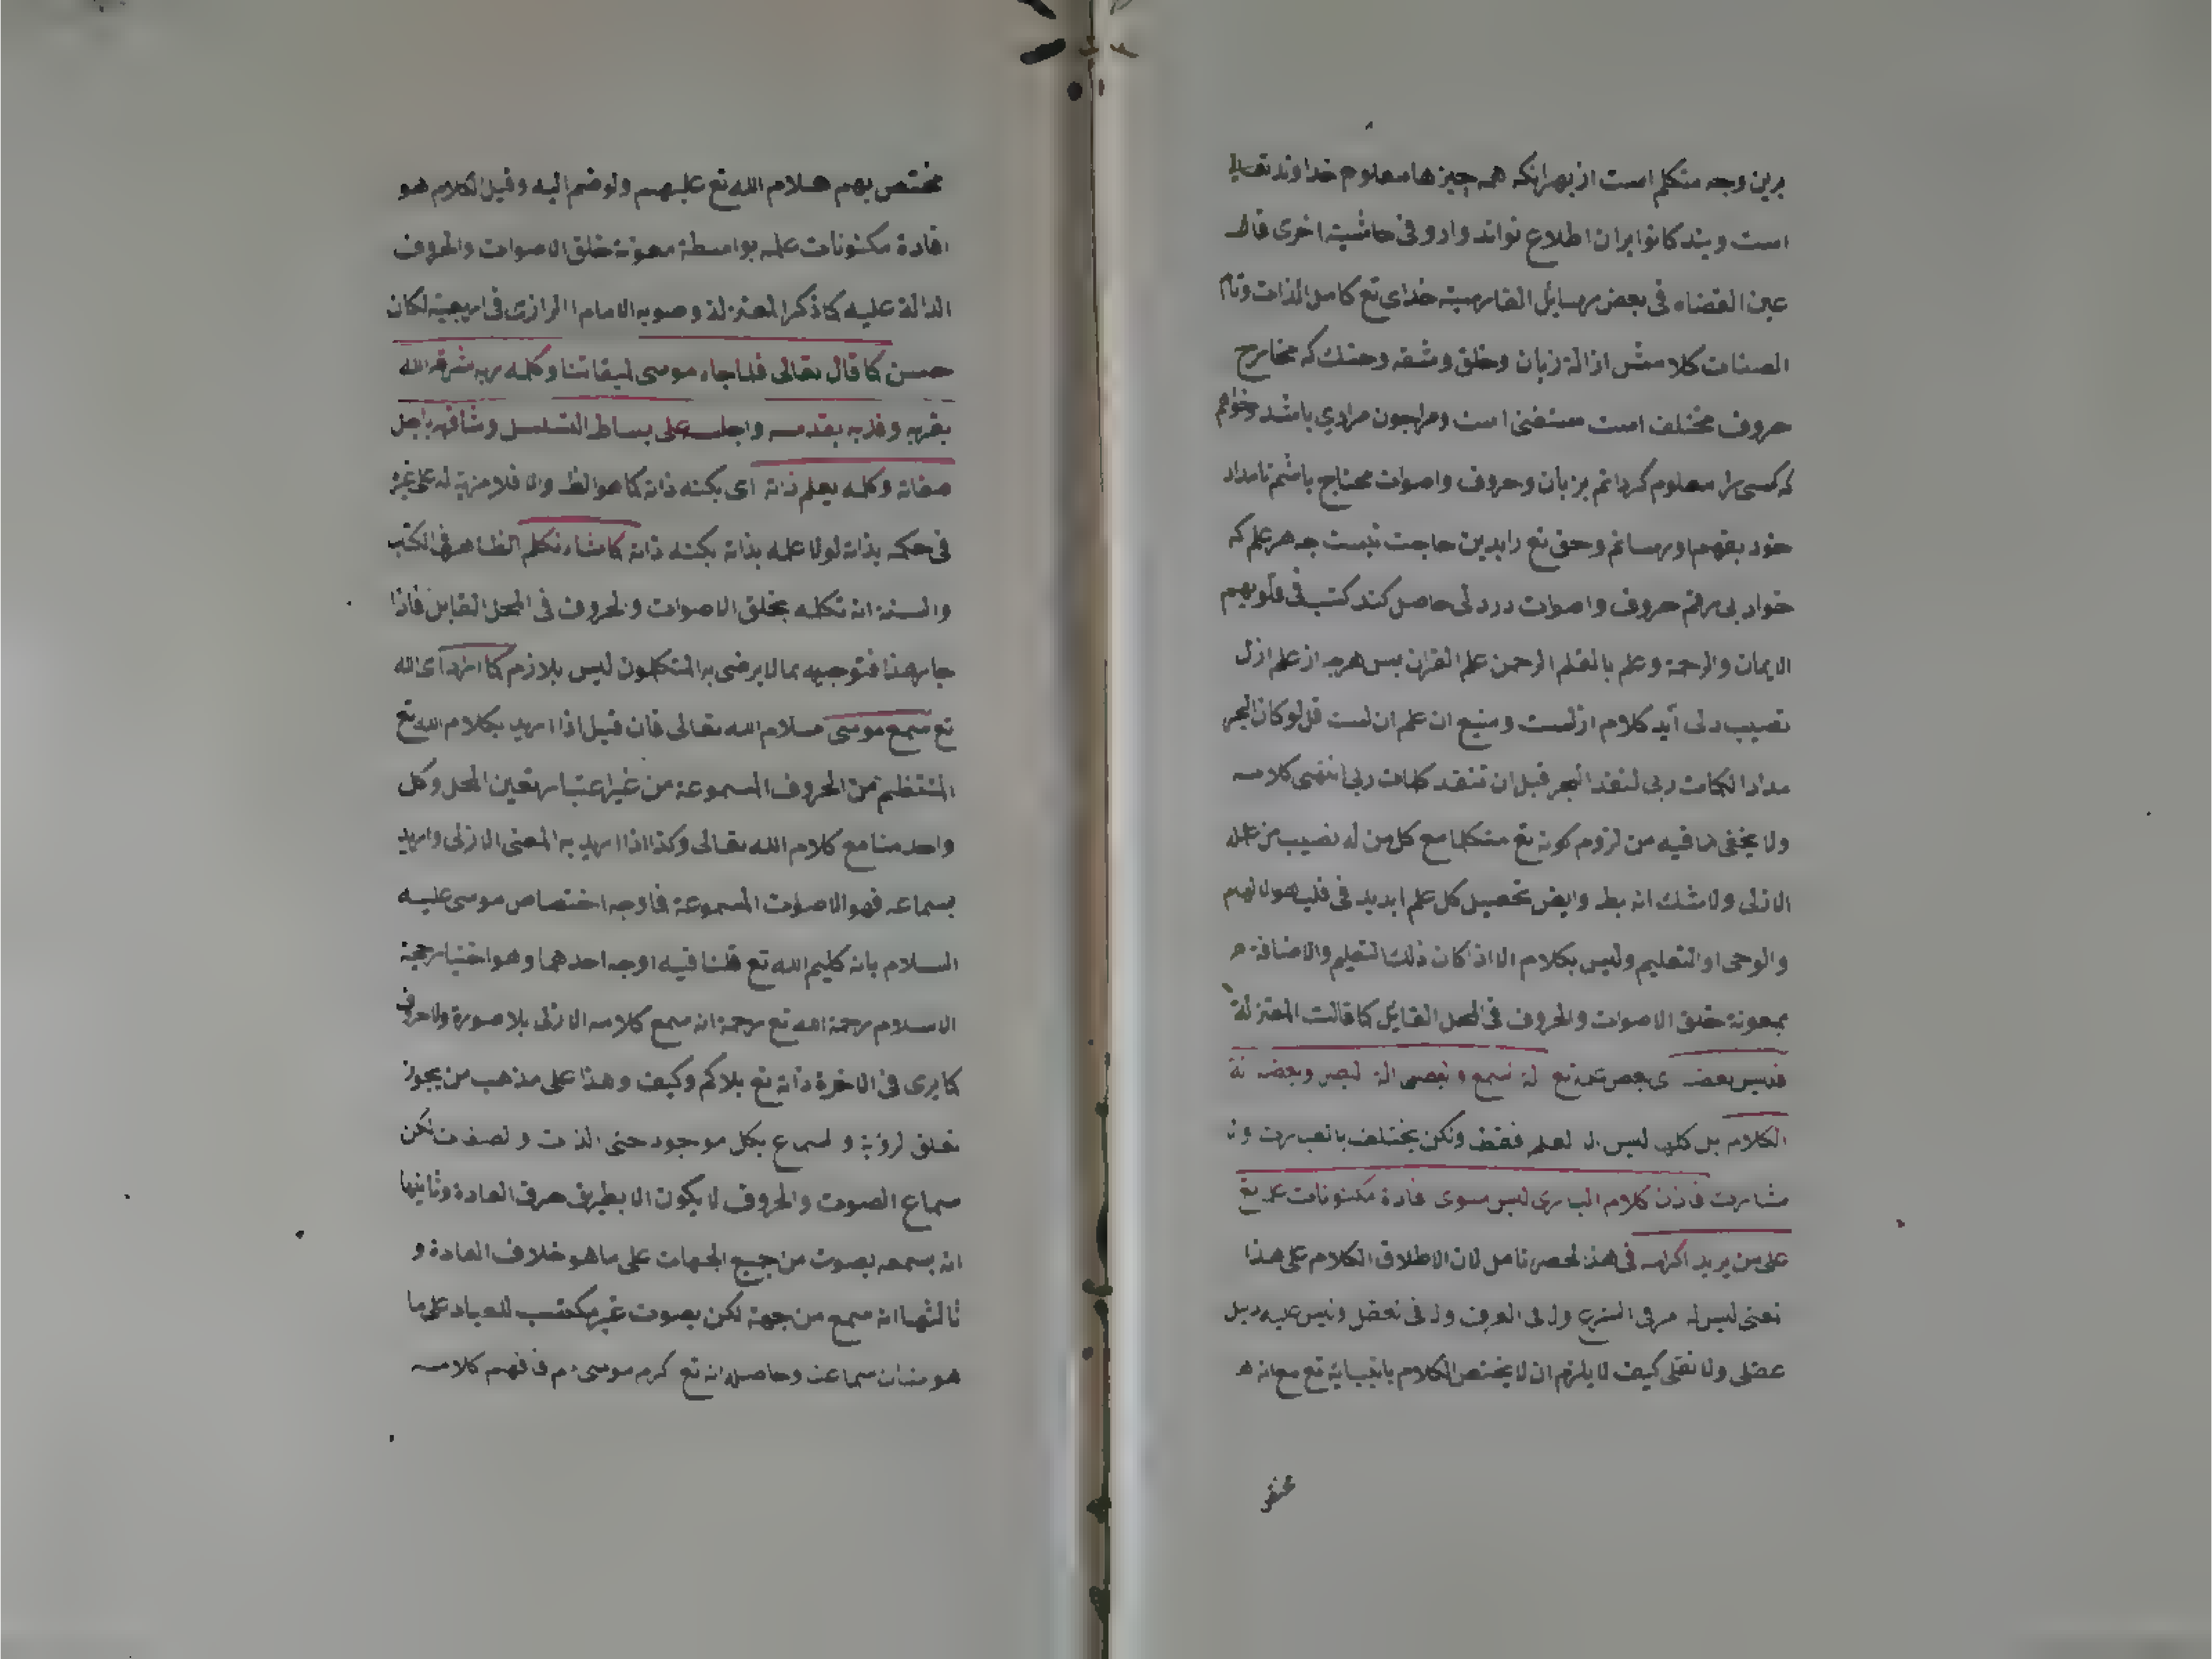 برين وجه متكلم است از بهر انكه همه چيزها معلوم خداوند تعالى
است و بندكانرا بران اطلاع تواند داد و فى حاشية اخرى قال
عين القضاه فى بعض رسايل الفارسية خداى تع كامل الذات وتام
الصفات كلامش از الة زبان وحلق وشفه وحنك كه مخارج
حروف مختلف است مستغنى است ومراجون مرادي باشد وخواهم
كه كسى را معلوم كردانم بزبان وحروف واصوات محتاج باشم تا مراد
خود بفهم او رسانم وحق تع را بدين حاجت نيست جه هر علم كه
خواد بى رقم حروف واصوات در دلى حاصل كند كتب فى قلوبهم
الايمان والرحمة وعلم بالقلم الرحمن علم القران بس هرجه از علم ازل
نصيب دلى آيد كلام ازلست ومنبع ان علم ان لست قل لو كان البحر
مدادا لكلمات ربى لنفد البحر قبل ان تنفد كلمات ربى انتهى كلامه
ولا يخفى ما فيه من لزوم كونه تع متكلما مع كل من له نصيب من علمه
الازلى ولا شك انه بط وايض تحصيل كل علم ابديد فى قلب هو الالهم
والوحى او التعليم وليس بكلام الا اذا كان ذلك التعليم والاضافة
بمعونة خلق الاصوات والحروف فى المحل القابل كما قالت المعتزلة
فليس بعض تع السمع و البصر وبعضه
الكلام بل كل ليس الا العلم فقط ولكن يختلف بالعبارت و
مشارت فاذن كلام البارى ليس سوى افادة مكنونات علمه تع
على من يريد اكرامه فى هذا الحصر تامل لان الاطلاق الكلام على هذا
المعنى ليس له فى الشرع ولا فى العرف ولا فى العقل وليس عليه دليل
عقلى ولا نقلى كيف لا يلزم ان لا يختص الكلام بانبيائه تع مع انه
مختص بهم سلام الله تع عليهم ولو ضم اليه وقيل الكلام هو
افادة مكنونات علمه بواسطة معونة خلق الاصوات والحروف
الدالة عليه كما ذكر المعتزلة وصوبه الامام الرازى فى اربعينه لكان
حسن كما قال تعالى فلما جاء موسى لميقاتنا وكلمه ربه شرفه الله
بقربه وقربه بقدسه واجلسه على بساط وشافهه باجل
صفاته وكلمه بعلم ذاته اى بكنه ذاته كما هو الظ والا فلا مزية له على غيره
فى حكمه بذاته لولا علمه بذاته بكنه ذاته كما شاء تكلم الظاهر فى الكتب
والسنة انه تكلمه بخلق الاصوات والحروف فى المحل القابل فاذا
جاء هذا فتوجيهه بما لا يرضى به المتكلمون ليس بلازم كما اراد اى الله
تع سمع موسى سلام الله تعالى فان قيل اذا اريد بكلام الله تع
المنتظم من الحروف المسموعة من غير اعتبار تعين المحل وكل
واحد منا مع كلام الله تعالى وكذا اذا اريد به المعنى الازلى واريد
بسماعه فهو الاصوات المسموعة فما وجه اختصاص موسى عليه
السلام بانه كليم الله تع قلنا فيه اوجه احدهما وهو اختيار حجة
الاسلام رحمة الله تع رحمة انه سمع كلامه الازلى بلا صورة ولا حرف
كما يرى فى الاخرة ذاته تع بلا كم وكيف وهذا على مذهب من يجوز
تعلق الروية والسماع بكل موجود حتى الذات والصفات لكن
سماع الصوت والحروف لا يكون الا بطريق خرق العادة وثانيها
انه بسمعه بصوت من جميع الجهات على ما هو خلاف العادة و
ثالثها انه سمع من جهة لكن بصوت غير مكتسب للعباد على ما
هو شان سماعنا وحاصله انه تع كرم موسى فافهم كلامه